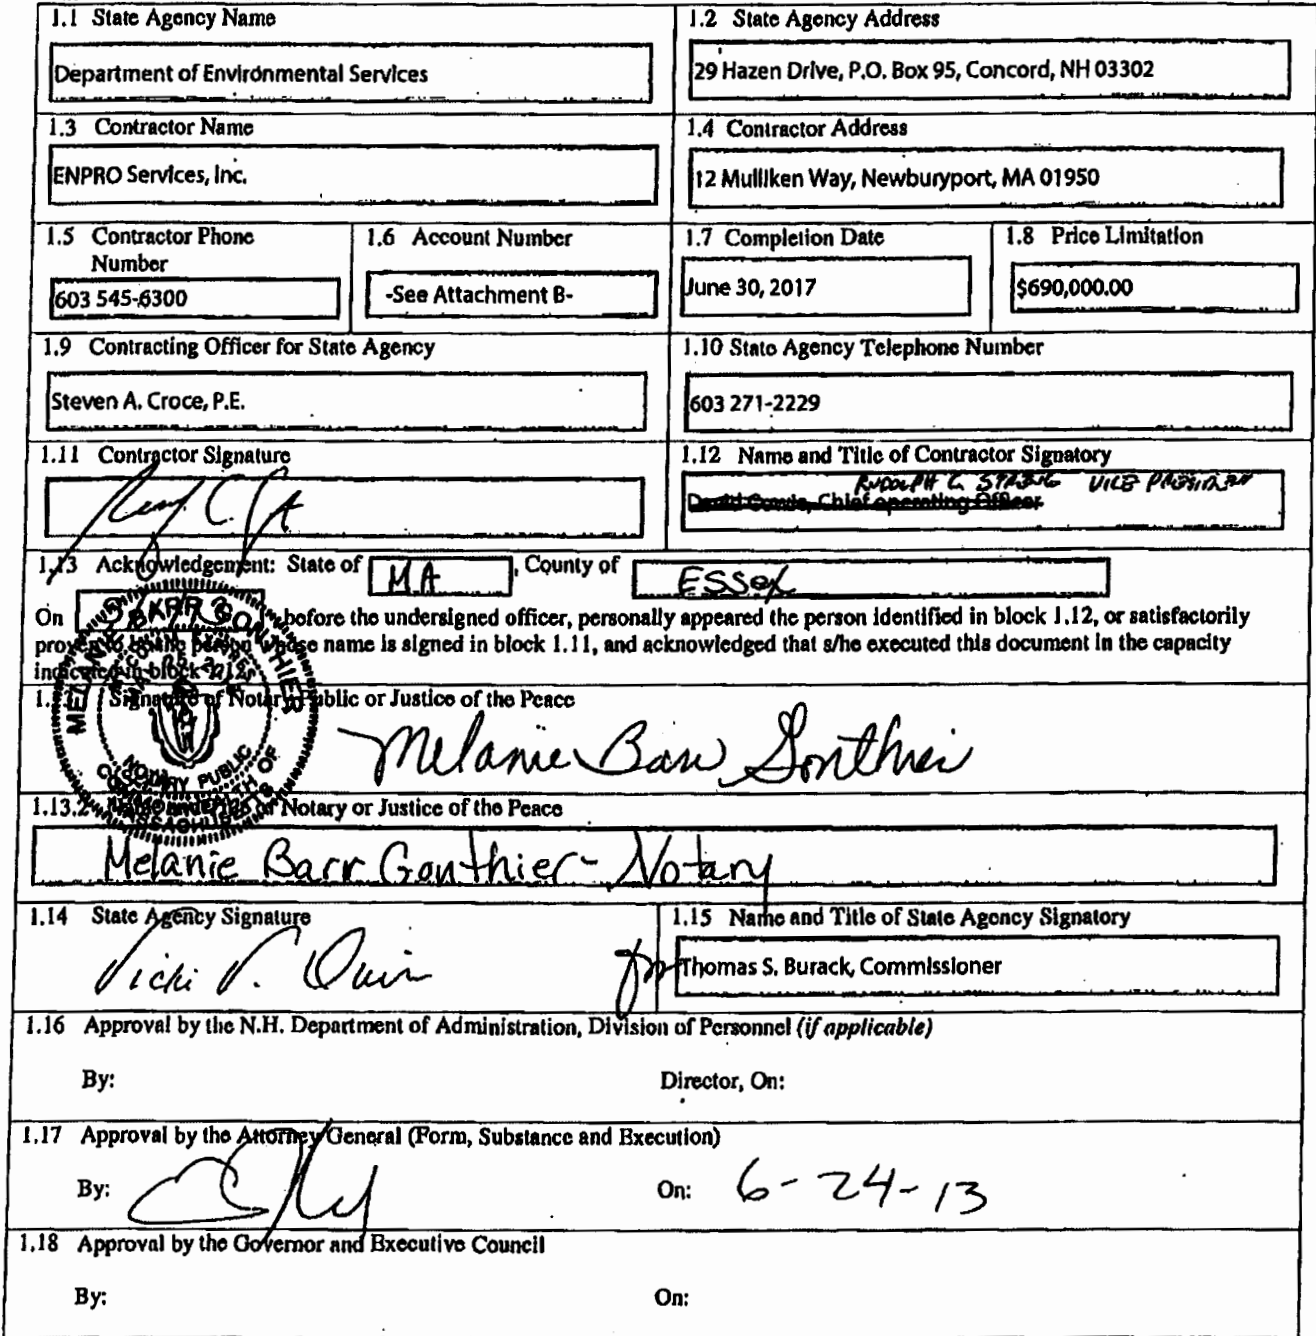 1.1 State Agency Name
Department of Environmental Services
1.2 State Agency Address
29 Hazen Drive, P.O. Box 95, Concord, NH 03302
1.3 Contractor Name
ENPRO Services, Inc.
1.4 Contractor Address
12 Mulliken Way, Newburyport, MA 01950
1.5 Contractor Phone
Number
603 545-6300
1.6 Account Number
-See Attachment B-
1.7 Completion Date
June 30, 2017
1.8 Price Limitation
$690,000.00
1.9 Contracting Officer for State Agency
Steven A. Croce, P.E.
1.10 State Agency Telephone Number
603 271-2229
1.11 Contractor Signature
1.12 Name and Title of Contractor Signatory
RUDOLPH C. VICE PRESIDENT
Chief operating Officer
1.13 Acknowledgement: State of MA, County of Essex
On before the undersigned officer, personally appeared the person identified in block 1.12, or satisfactorily
proven to be the person whose name is signed in block 1.11, and acknowledged that s/he executed this document in the capacity
indicated in block 1.12.
Signature of Notary Public or Justice of the Peace
Melanie Barr Gonthier
MELANIE BARR GONTHIER
NOTARY PUBLIC
COMMONWEALTH OF
MASSACHUSETTS
1.13.2 Notary or Justice of the Peace
Melanie Barr Gonthier - Notary
1.14 State Agency Signature
Vicki V. Quiram
for
1.15 Name and Title of State Agency Signatory
Thomas S. Burack, Commissioner
1.16 Approval by the N.H. Department of Administration, Division of Personnel (if applicable)
By:
Director, On:
1.17 Approval by the Attorney General (Form, Substance and Execution)
By:
On: 6-24-13
1.18 Approval by the Governor and Executive Council
By:
On: